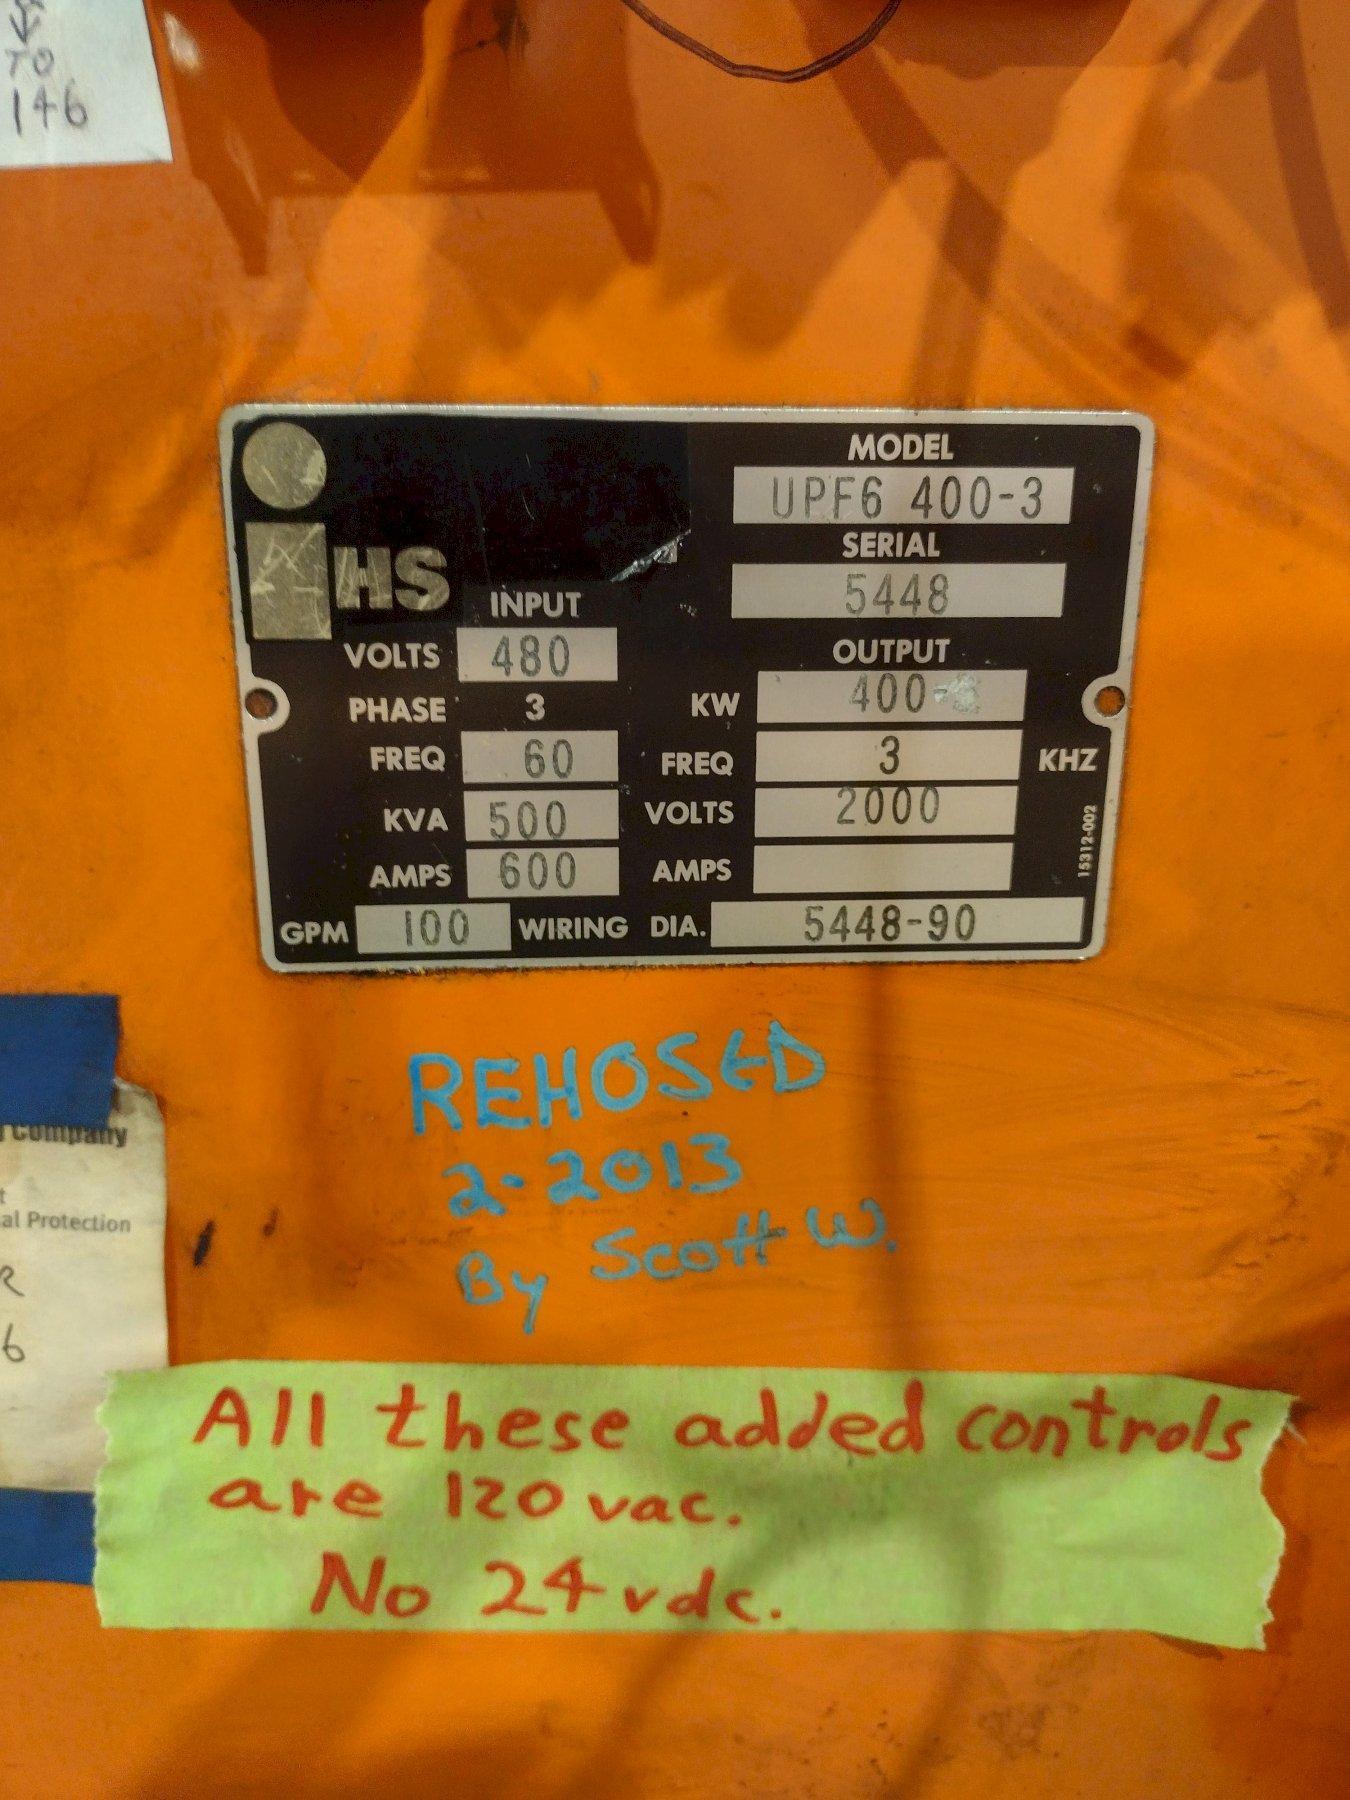 TO
146
MODEL
UPF6 400-3
SERIAL
5448
HS
INPUT
OUTPUT
VOLTS 480
KW 400
PHASE 3
FREQ 60
FREQ 3 KHZ
KVA 500
VOLTS 2000
AMPS 600
AMPS
15312-002
GPM 100 WIRING DIA. 5448-90
REHOSED
2-2013
By Scott W.
Company
al Protection
R
6
All these added controls
are 120 vac.
No 24 vdc.